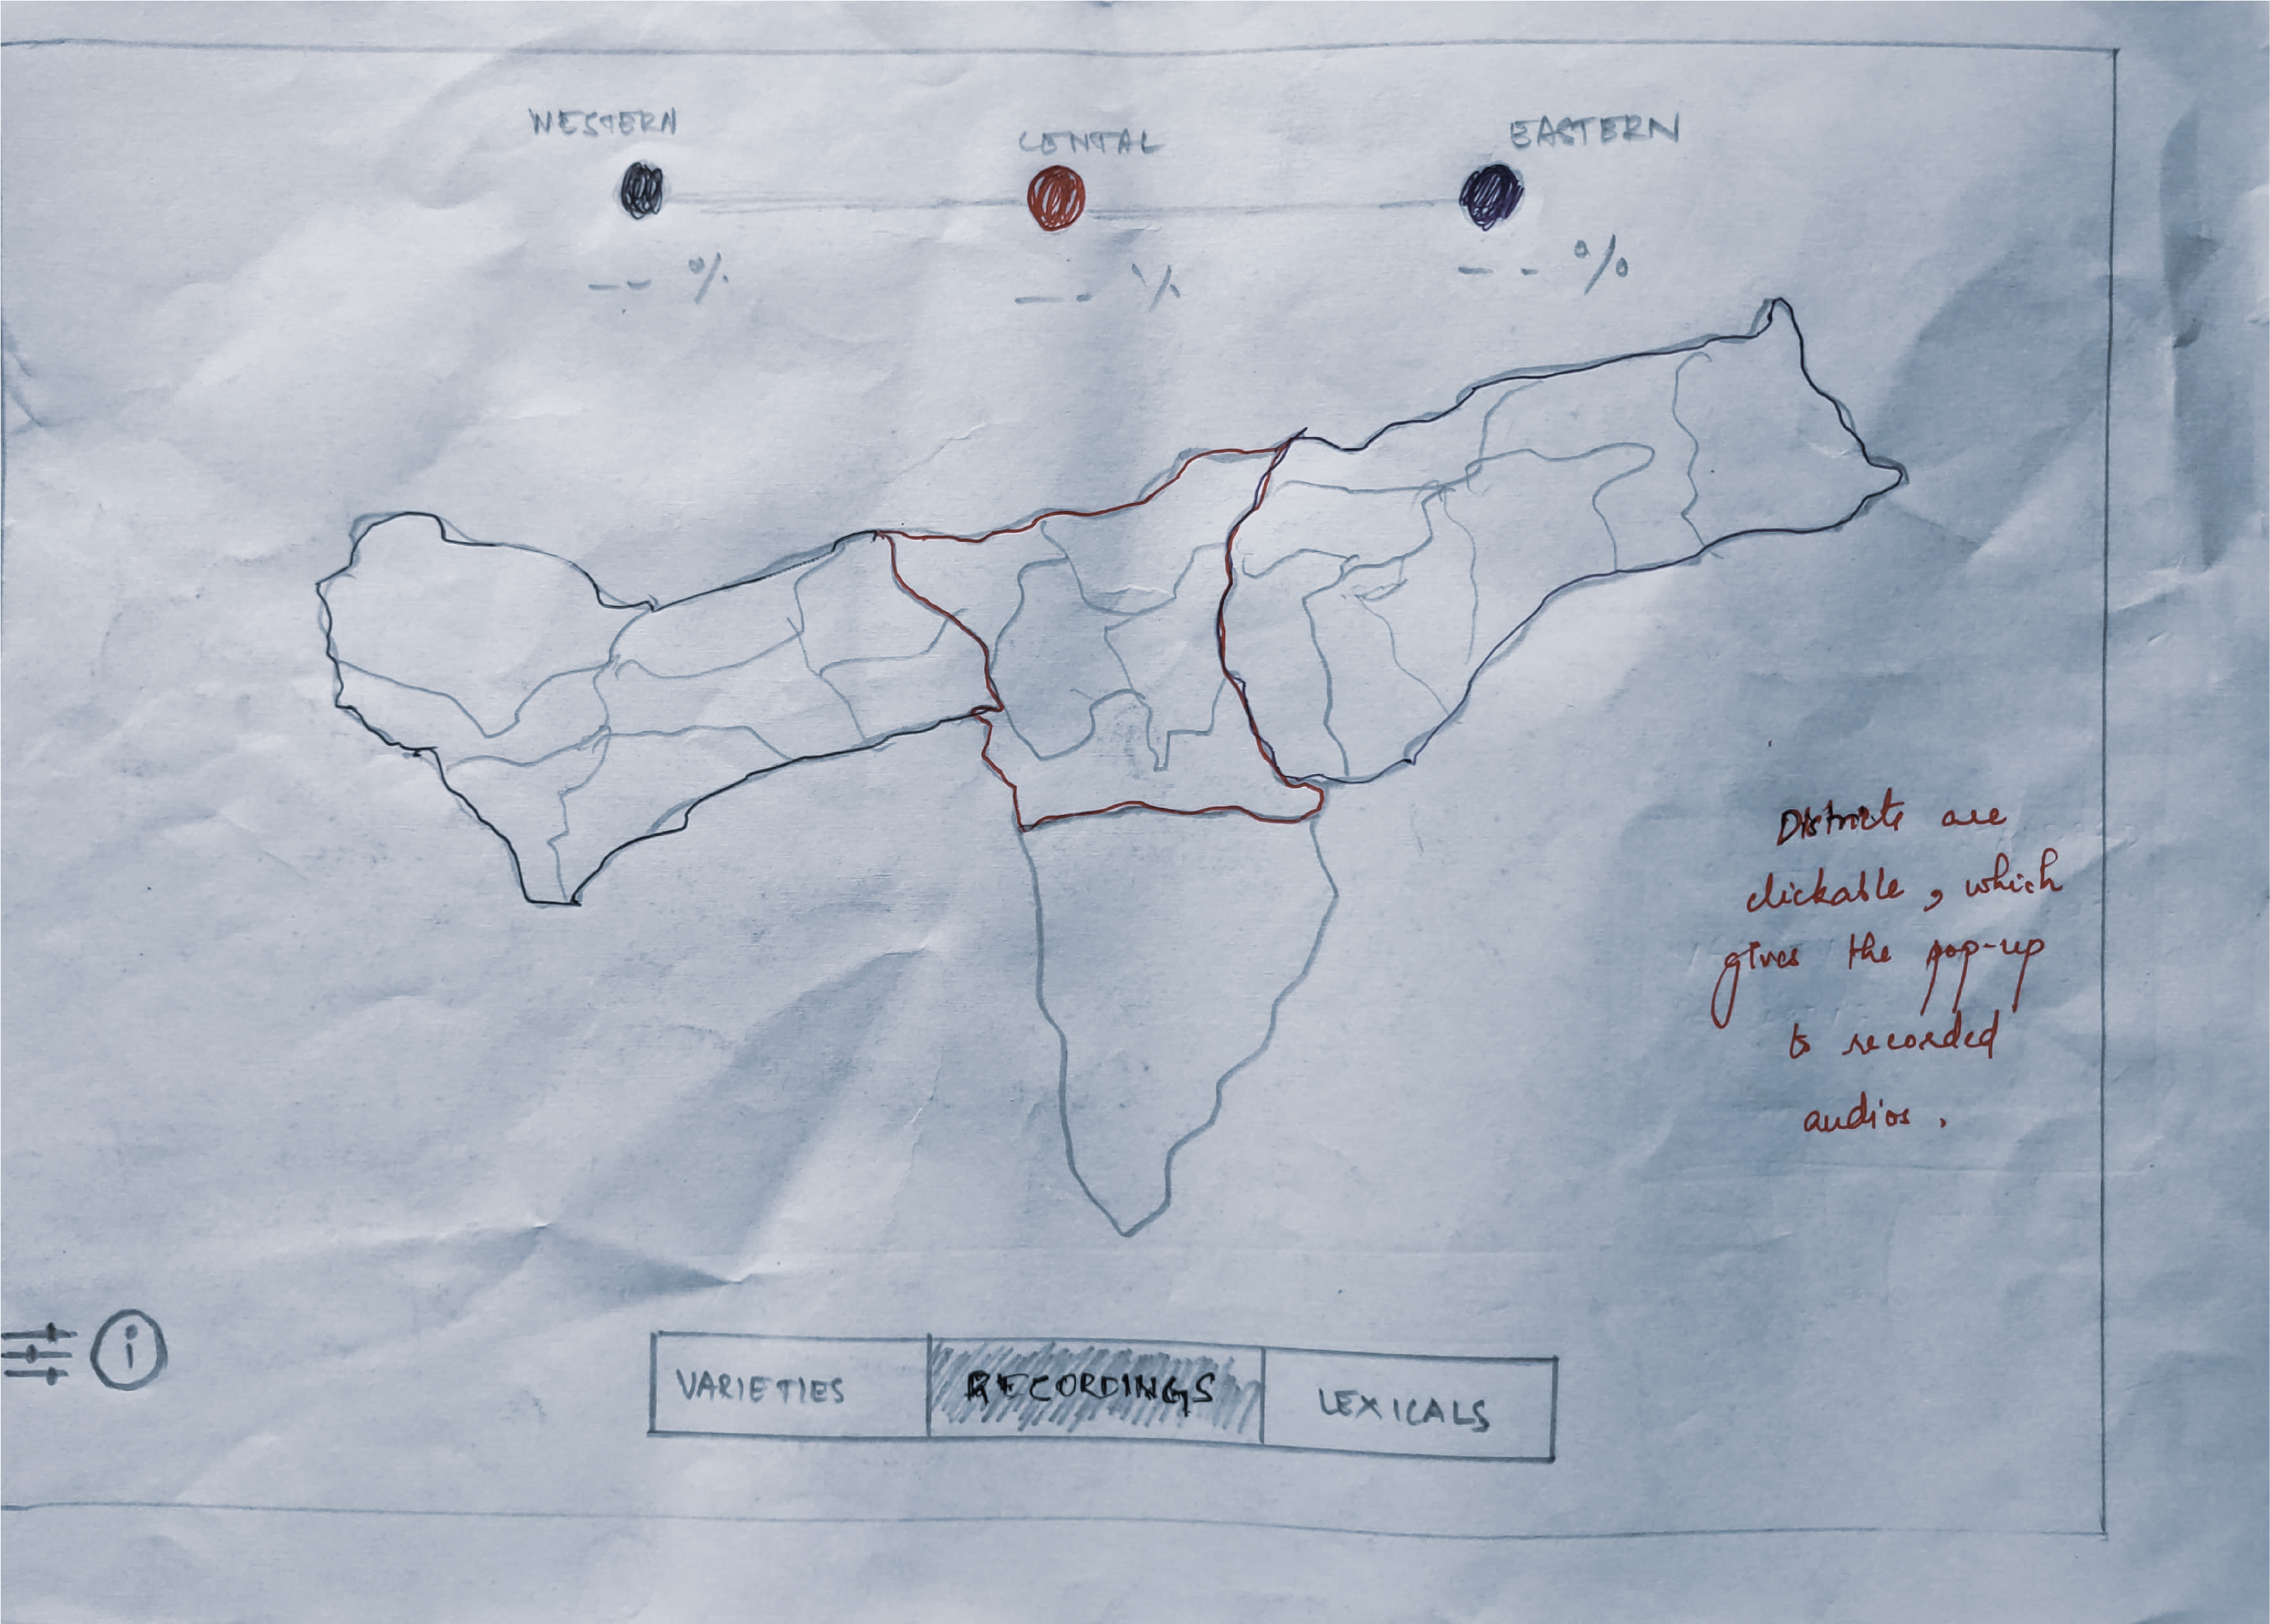 WESTERN
CENTAL
EASTERN
-- %
-- %
-- %
Districts are
clickable, which
gives the pop-up
to recorded
audios.
i
VARIETIES
RECORDINGS
LEXICALS